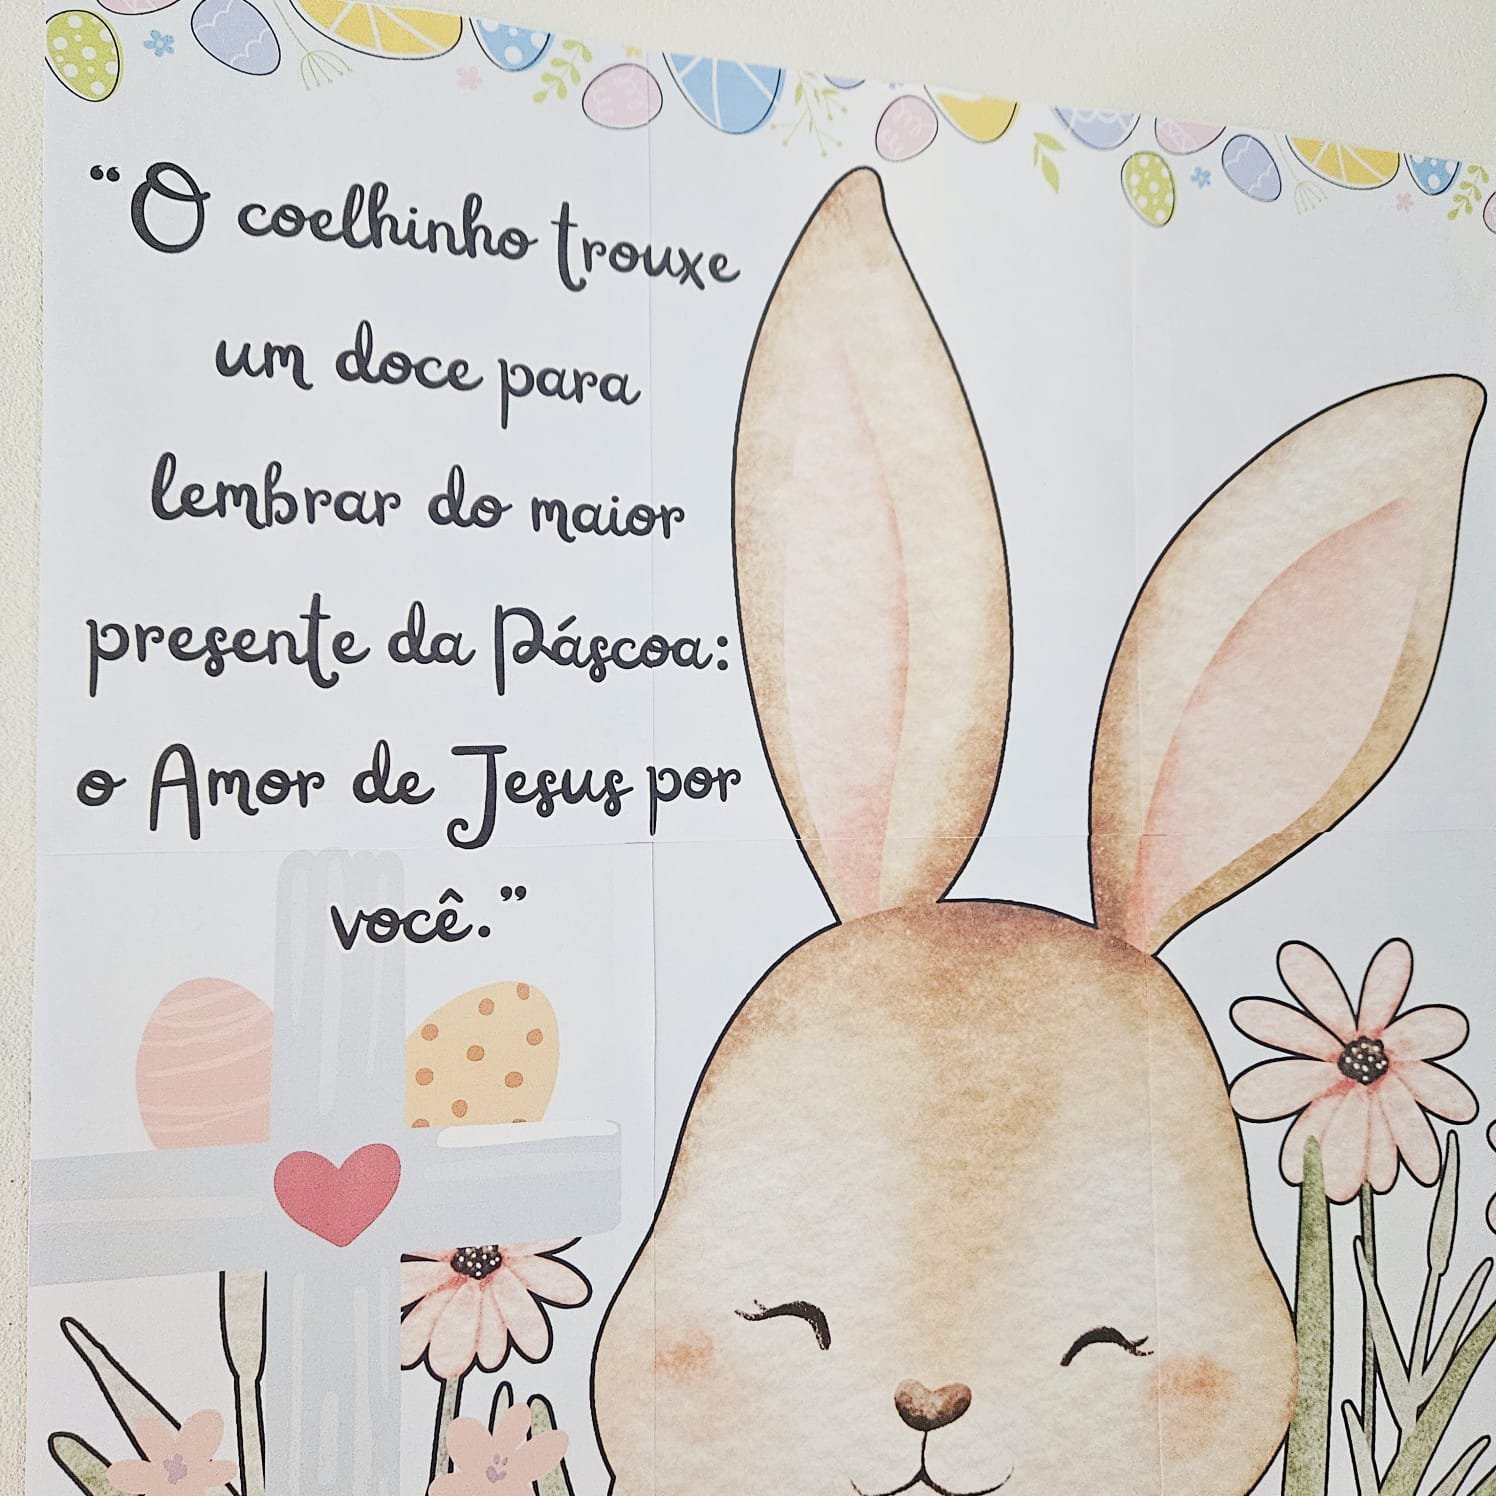 “O coelhinho trouxe
um doce para
lembrar do maior
presente da Páscoa:
o Amor de Jesus por
você.”